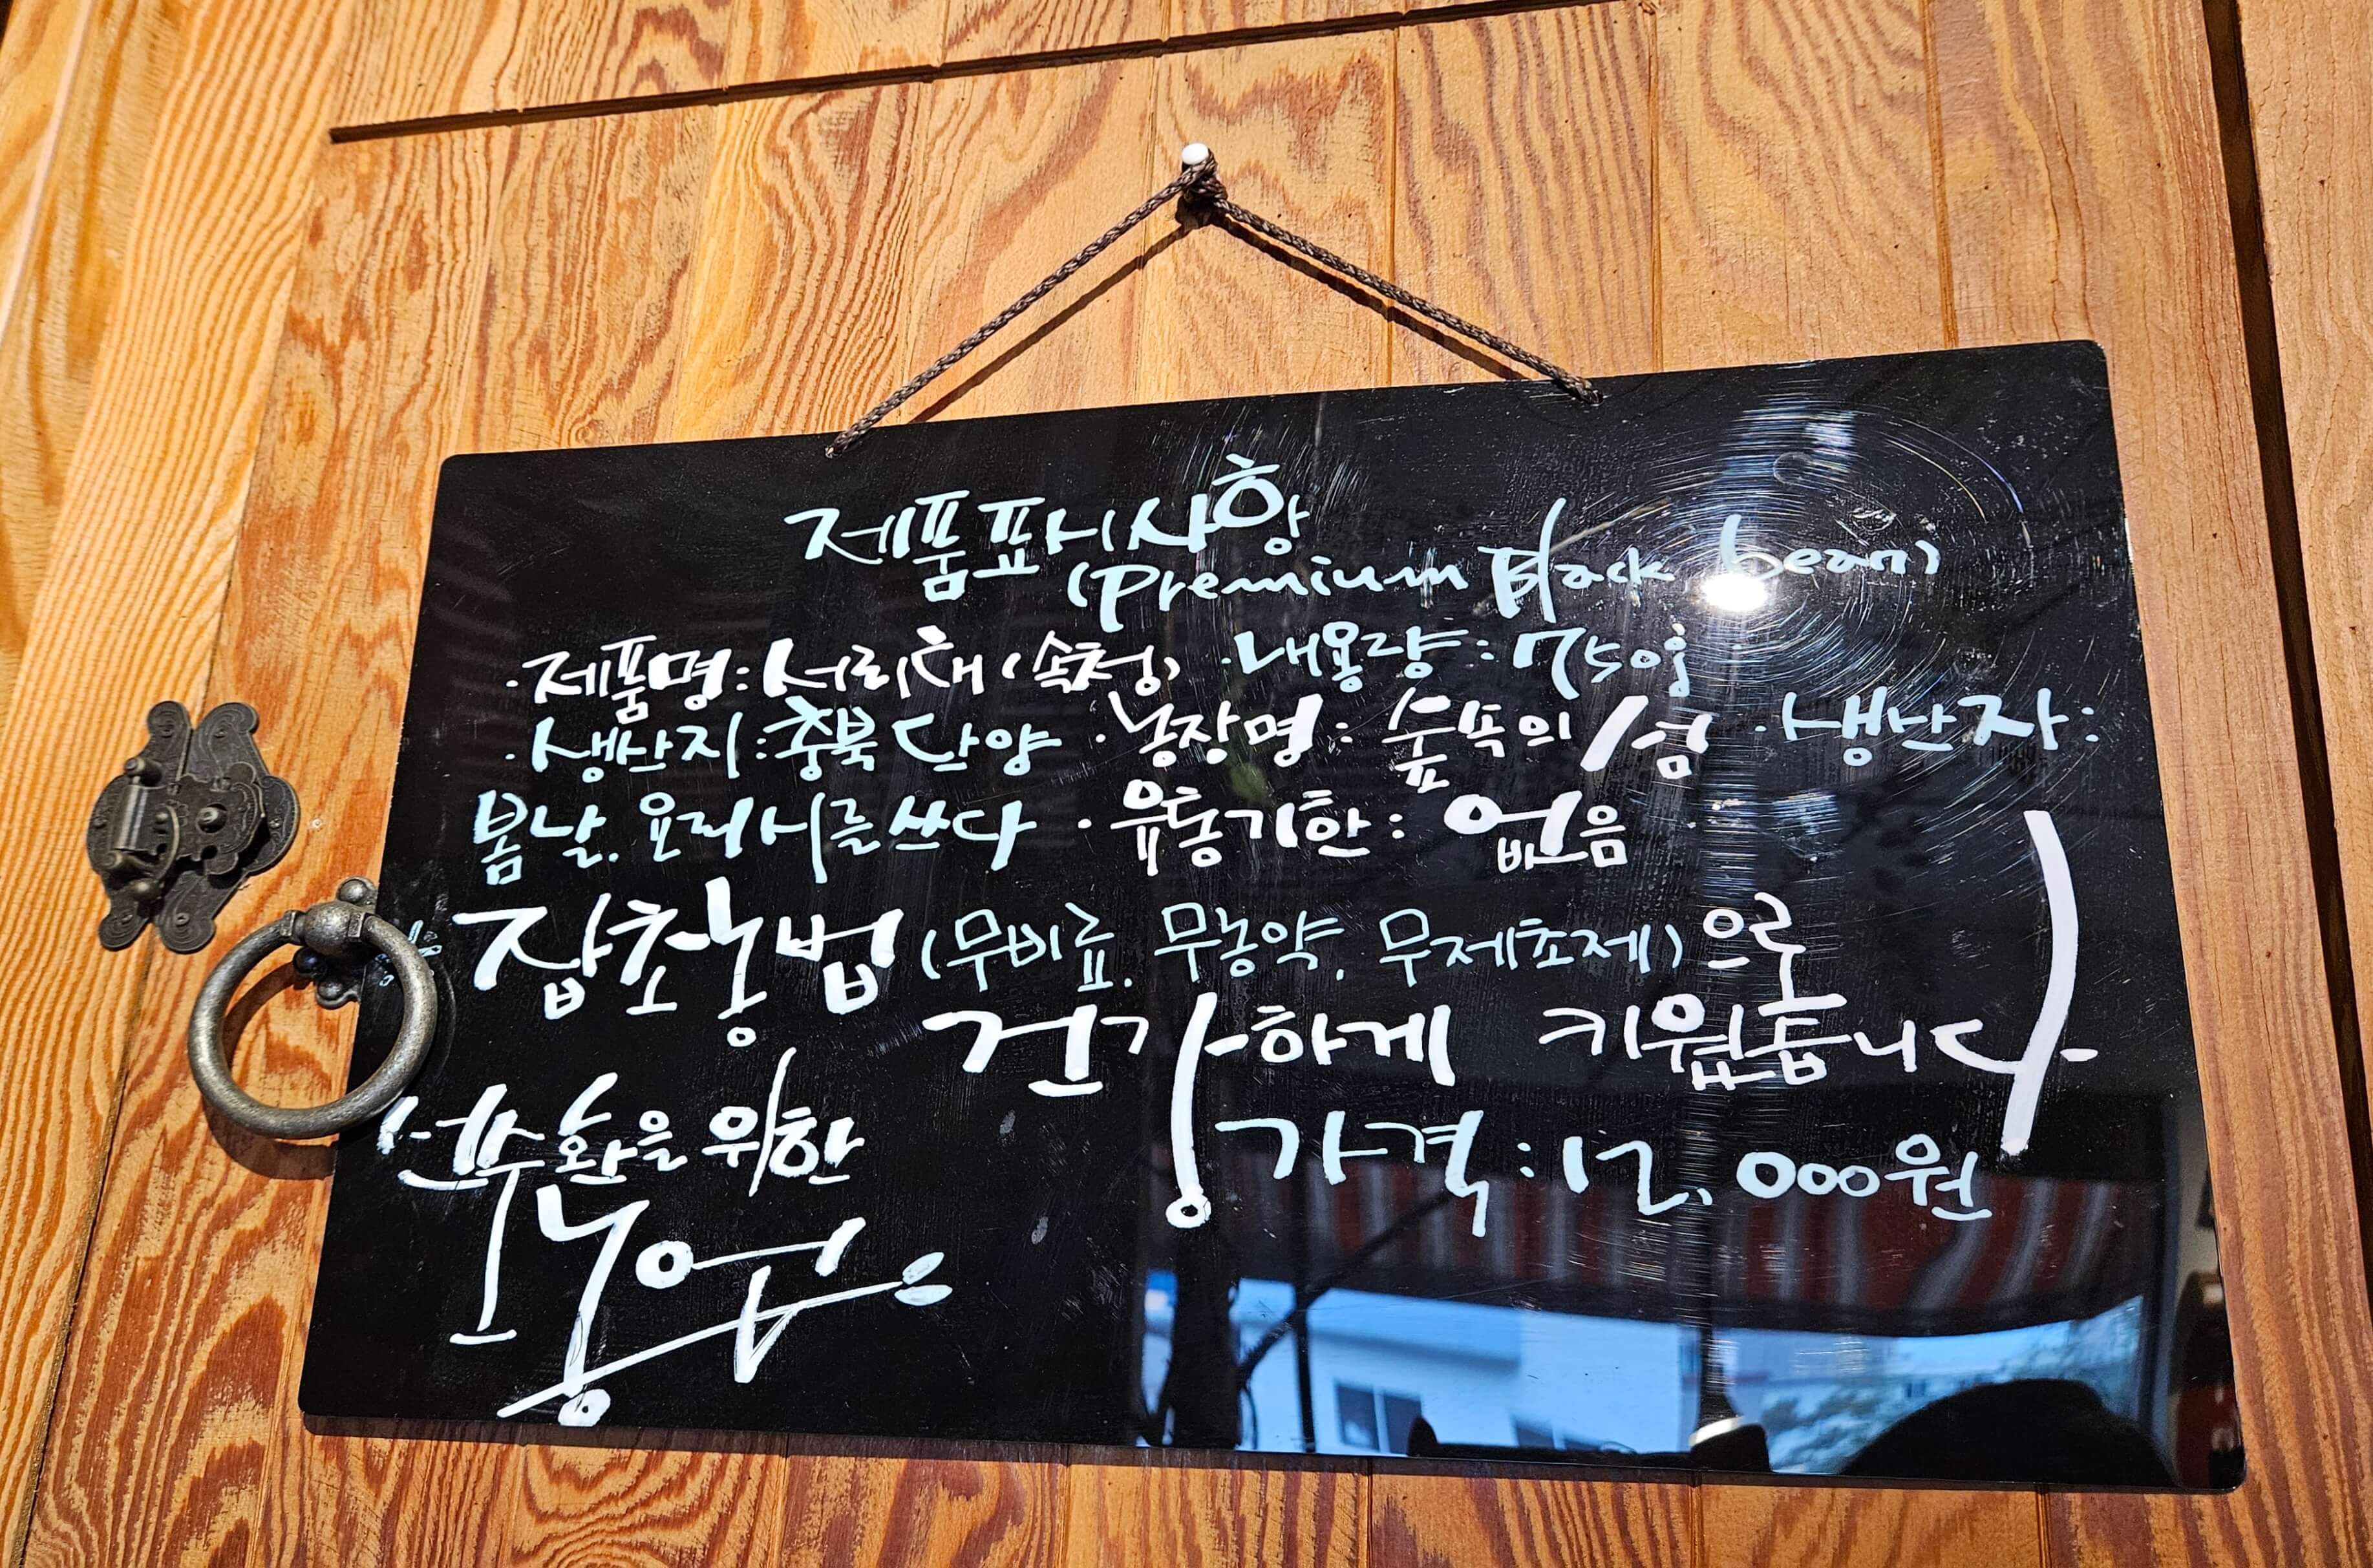 제품표시사항
(Premium Black bean)
·제품명:서리태(속청) ·내용량:750g
·생산지:충북 단양 ·농장명:숲속의 섬 ·생산자:
봄날. 요리 시를 쓰다 ·유통기한: 없음
잡초농법(무비료. 무농약. 무제초제)으로
건강하게 키웠습니다
가격:12,000원
선순환을 위한
농업